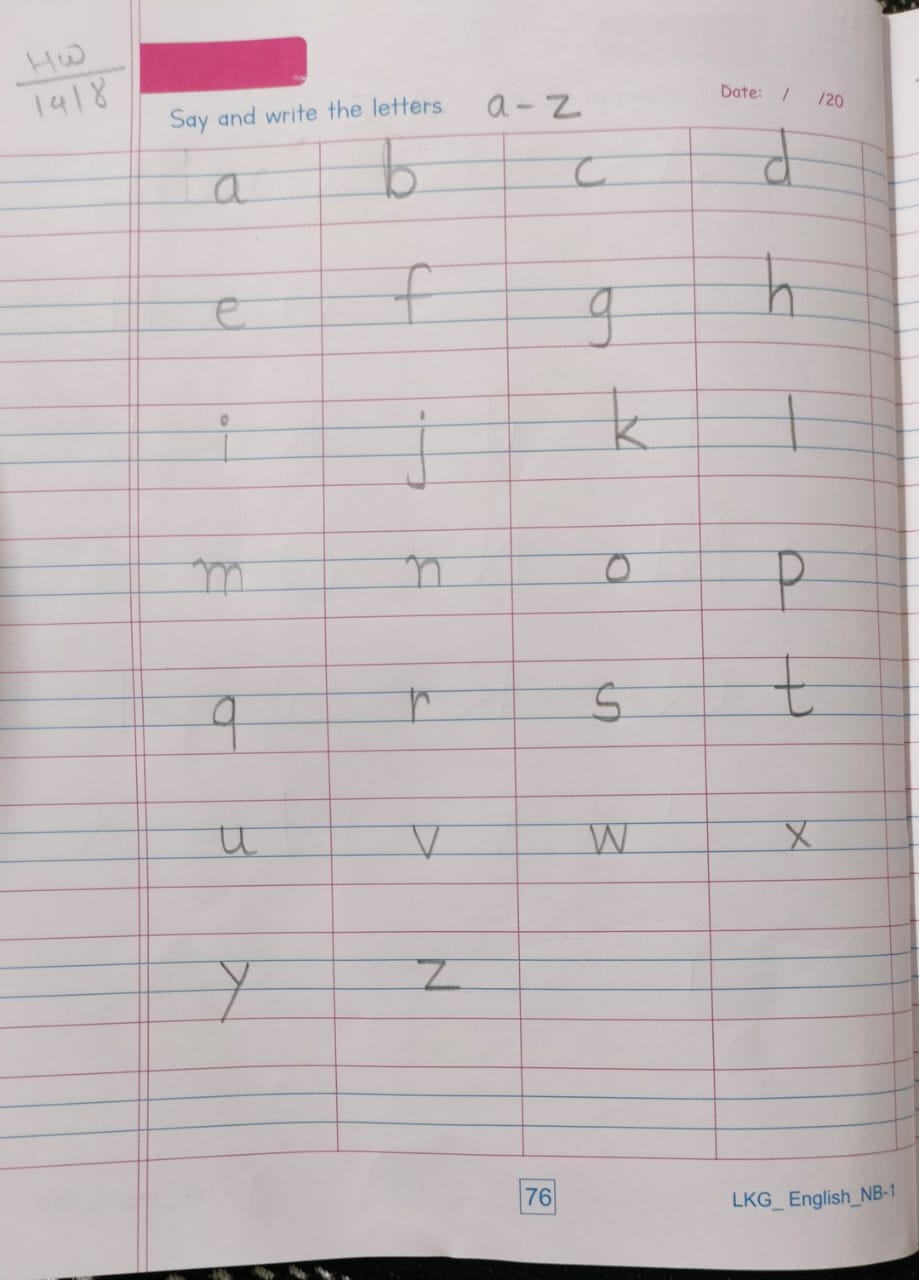 HW
14/8
Say and write the letters. a-z
Date: / /20
a b c d
e f g h
i j k l
m n o p
q r s t
u v w x
y z
76
LKG_ English_NB-1